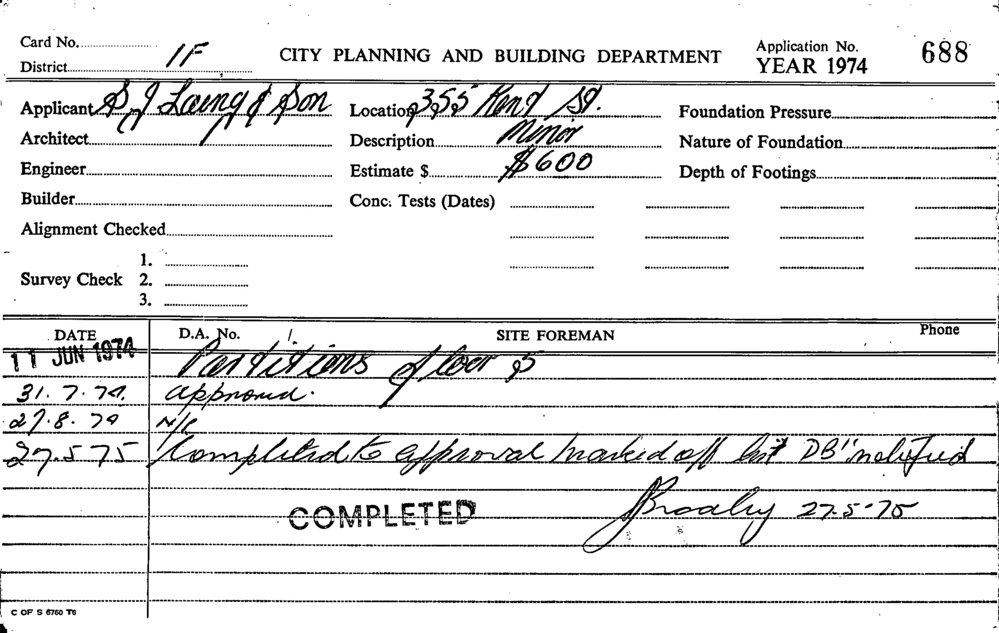 Card No. CITY PLANNING AND BUILDING DEPARTMENT Application No. 688
District 1F YEAR 1974
Applicant S J Laing & Son Location 355 Kent St. Foundation Pressure
Architect Description Minor Nature of Foundation
Engineer Estimate $ $600 Depth of Footings
Builder Conc. Tests (Dates)
Alignment Checked
1.
Survey Check 2.
3.
DATE D.A. No. SITE FOREMAN Phone
11 JUN 1974 Partitions floor 5
31.7.74. approved.
27.8.74 N/C
27.5.75 Completed to approval marked off list DB notified
27-5-75
COMPLETED
C OF S 6760 T6